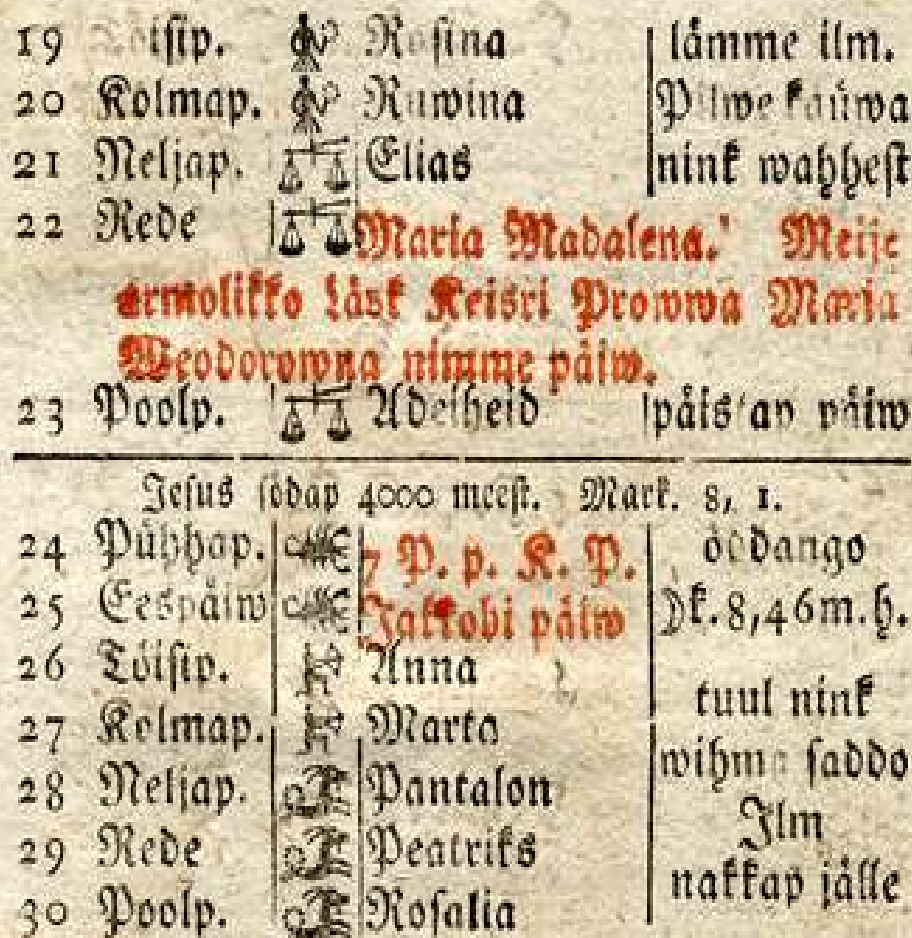 19 Töisip. Rosina lämme ilm.
20 Kolmap. Ruwina Pilwe kaüwa
21 Neljap. Elias nink wahhest
22 Rede Maria Madalena. Meije
armolikko Läsk Keisri Prowwa Maria
Weodorowna nimme päiw.
23 Poolp. Adelheid päistap päiw
Jesus södap 4000 meest. Mark. 8, 1.
24 Pühhap. 7 P. p. K. P. öödango
25 Eespäiw Jakkobi päiw k. 8,46m.h.
26 Töisip. Anna
tuul nink
27 Kolmap. Marta
wihma saddo
28 Neljap. Pantalon
Ilm
29 Rede Peatriks
nakkap jälle
30 Poolp. Rosalia